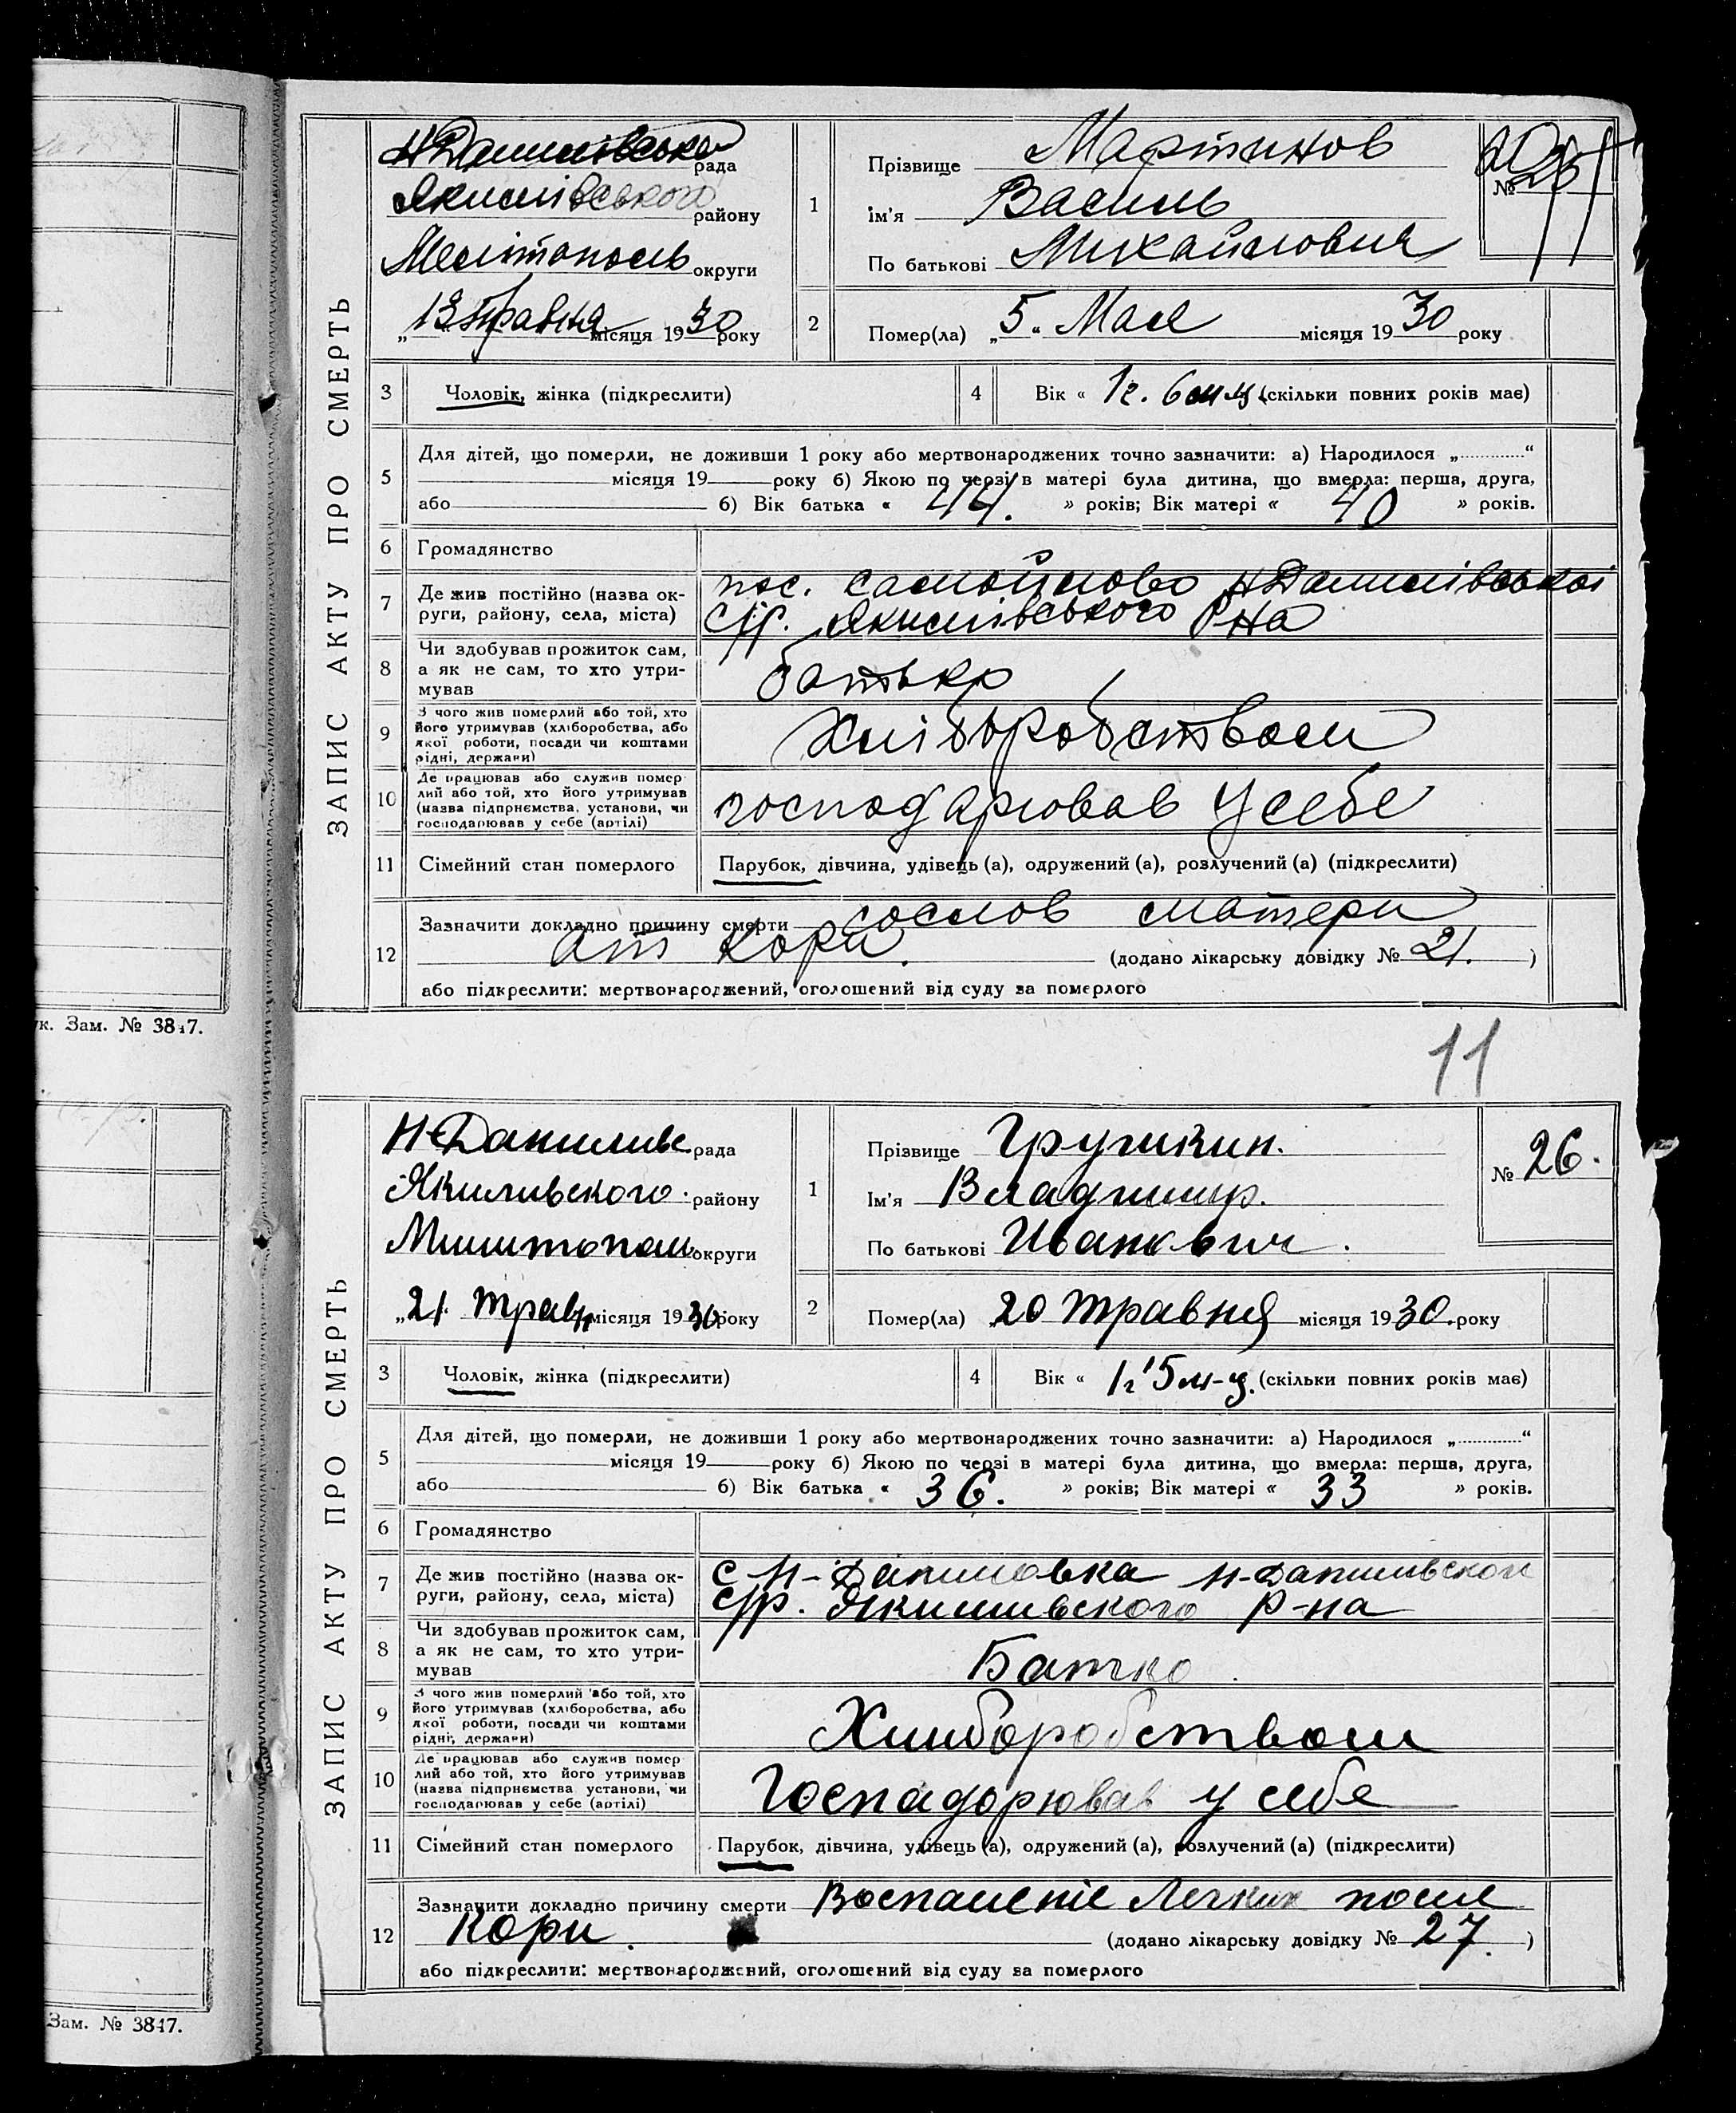 ЗАПИС АКТУ ПРО СМЕРТЬ
Н Данилівська рада
Якимівського району
Мелітополь округи
„13 травня місяця 1930 року
1
Прізвище Мартинов
Ім'я Василь
По батькові Михайлович
№ 25
2
Помер(ла) „5 „ Мая місяця 1930 року
3 Чоловік, жінка (підкреслити)
4 Вік « 1г. 6 м-ц (скільки повних років має)
5 Для дітей, що померли, не доживши 1 року або мертвонароджених точно зазначити: а) Народилося „............“
місяця 19 року б) Якою по черзі в матері була дитина, що вмерла: перша, друга,
або б) Вік батька « 44. » років; Вік матері « 40 » років.
6 Громадянство
7 Де жив постійно (назва ок-
руги, району, села, міста)
пос. Самойлово Н Данилівської
с/р. Якимівського Рна
8 Чи здобував прожиток сам,
а як не сам, то хто утри-
мував
батько
9 З чого жив померлий або той, хто
його утримував (хліборобства, або
якої роботи, посади чи коштами
рідні, держави)
Хліборобством
10 Де працював або служив помер
лий або той, хто його утримував
(назва підприємства, установи, чи
господарював у себе (артілі)
господарював у себе
11 Сімейний стан померлого
Парубок, дівчина, удівець (а), одружений (а), розлучений (а) (підкреслити)
12 Зазначити докладно причину смерти сослов матери
от кори. (додано лікарську довідку № 21. )
або підкреслити: мертвонароджений, оголошений від суду за померлого
к. Зам. № 3847.
11
ЗАПИС АКТУ ПРО СМЕРТЬ
Н-Даниливс рада
Якимивского району
округи
„21 Травн місяця 1930 року
1
Прізвище
Ім'я Владимир.
По батькові Иванович.
№ 26.
2
Помер(ла) „20 Травня місяця 1930. року
3 Чоловік, жінка (підкреслити)
4 Вік « 1г 5 м-ц. (скільки повних років має)
5 Для дітей, що померли, не доживши 1 року або мертвонароджених точно зазначити: а) Народилося „............“
місяця 19 року б) Якою по черзі в матері була дитина, що вмерла: перша, друга,
або б) Вік батька « 36. » років; Вік матері « 33 » років.
6 Громадянство
7 Де жив постійно (назва ок-
руги, району, села, міста)
с Н-Даниловка Н-Даниливской
с/р. Якимивского Р-на
8 Чи здобував прожиток сам,
а як не сам, то хто утри-
мував
Батко
9 З чого жив померлий або той, хто
його утримував (хліборобства, або
якої роботи, посади чи коштами
рідні, держави)
Хлиборобством
10 Де працював або служив помер
лий або той, хто його утримував
(назва підприємства установи, чи
господарював у себе (артілі)
Госпадорював у себе
11 Сімейний стан померлого
Парубок, дівчина, удівець (а), одружений (а), розлучений (а) (підкреслити)
12 Зазначити докладно причину смерти Воспаление Легких после
Кори. (додано лікарську довідку № 27. )
або підкреслити: мертвонароджений, оголошений від суду за померлого
Зам. № 3847.